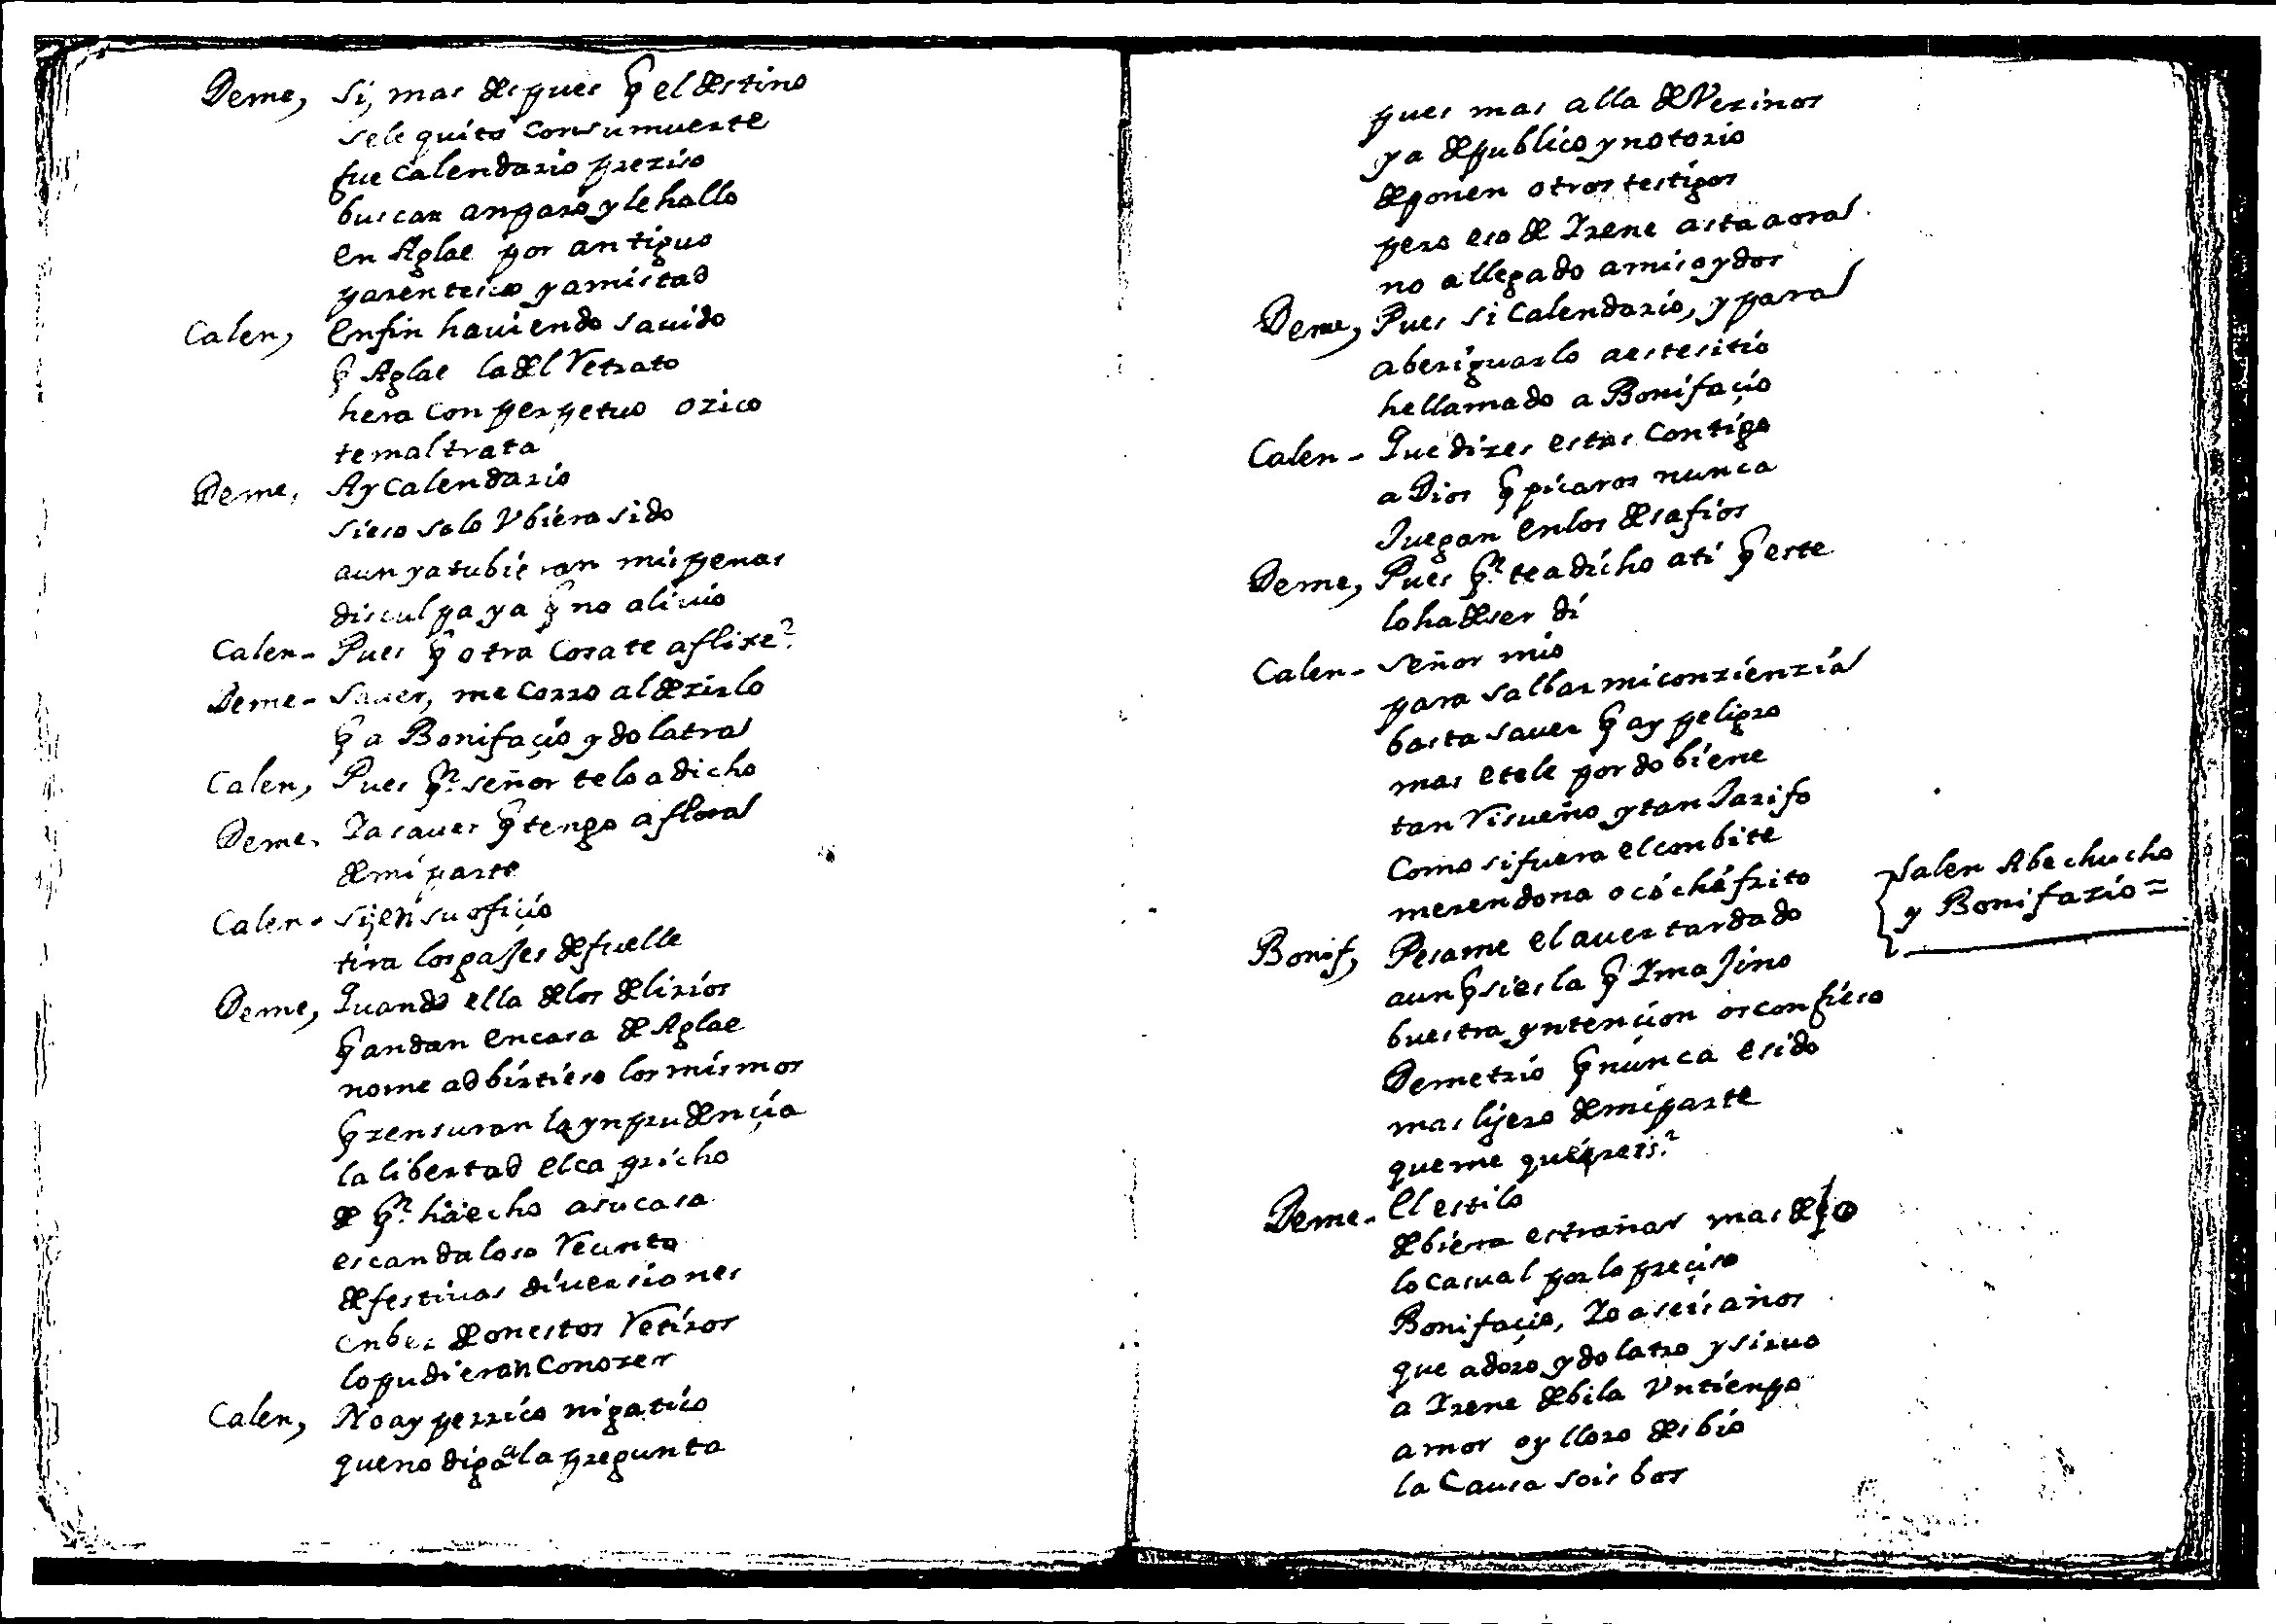 Deme, Si, mas despues q̃ el destino
sele quito consumuerte
fue Calendario preziso
buscar anparo y le hallo
en Aglae por antiguo
parentesco y amistad
Calen, enfin hauiendo sauido
q̃ Aglae la del Retrato
hera con perpetuo ozico
temaltrata
Deme, Ay Calendario
sieso solo Vbiera sido
aun ya tubieran mis penas
disculpa ya q̃ no aliuio
Calen- Pues q̃ otra Cosa te aflixe?
Deme- Sauer, me Corro al dezirlo
q̃ a Bonifaçio ydolatra
Calen, Pues qn. señor telo a dicho
Deme. Ya saues q̃ tengo a flora
de mi parte
Calen- Si, en su ofiçio
tira los gajes de fuelle
Deme, Quando ella delos delirios
q̃ andan en casa de Aglae
nome adbirtiese los mismos
q̃ zensuran la ynprudençia
la libertad el capricho
de qn. ha echo asu casa
escandaloso Recinto
defestiuas diuersiones
enbez de onestos Retiros
lo pudieran Conozer
Calen, No ay perrico ni gatico
que no diga a la pregunta
pues mas alla de Vezinos
ya de publico y notorio
deponen otros testigos
pero eso de Irene asta aora
no allegado amis oydos
Deme, Pues si Calendario, y para
aberiguarlo aeste sitio
hellamado a Bonifaçio
Calen- Que dizes estas Contigo
a Dios q̃ picaros nunca
Juegan en los desafios
Deme, Pues qn. te a dicho ati q̃ este
lo ha de ser di
Calen- Señor mio
para salbar mi conzienzia
basta sauer q̃ ay peligro
mas etele por do biene
tan Risueño y tan Jarifo
Como si fuera el conbite
merendona o cochifrito
Salen Abechucho
y Bonifazio =
Bonif, Pesame el auer tardado
aunq̃ si es la q̃ Imajino
buestra yntençion os confieso
Demetrio q̃ nunca e sido
mas lijero de mi parte
que me quereis?
Deme- El estilo
debiera estrañar mas dejo
lo Casual por lo preçiso
Bonifaçio, Yo a seis años
que adoro ydolatro y siruo
a Irene debila Vn tienpo
amor oy lloro desbio
la Causa sois bos